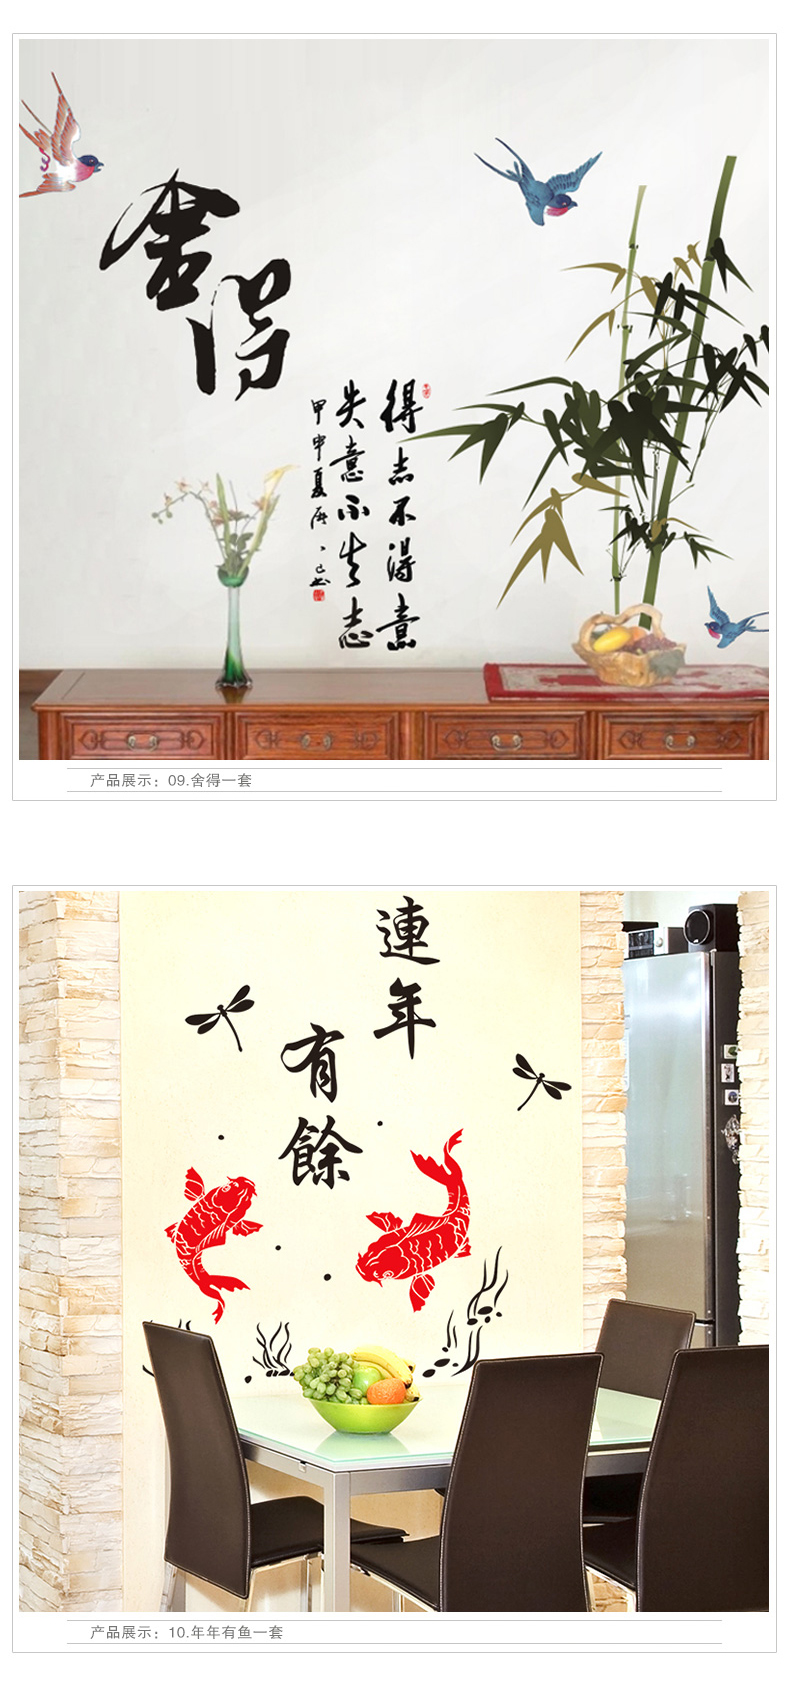 舍得
得志不得意
失意不失志
甲申夏
产品展示：09.舍得一套
連年
有餘
产品展示：10.年年有鱼一套